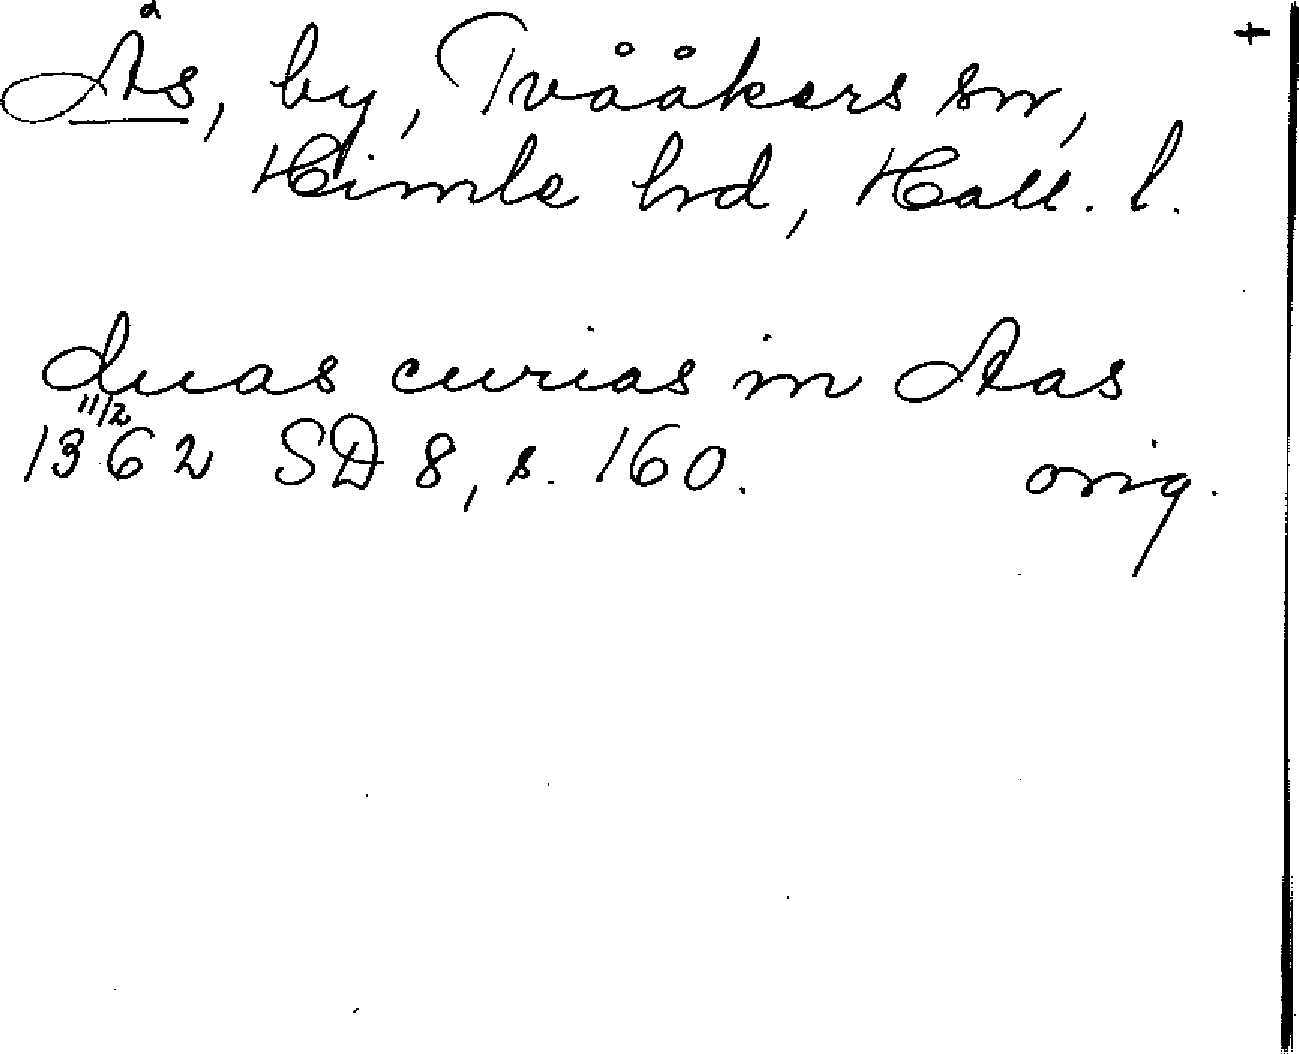 Ås, by, Tvååkers sn, +
Himle hrd, Hall. l.
duas curias in Aas
11/2
1362 SD 8, s. 160. orig.